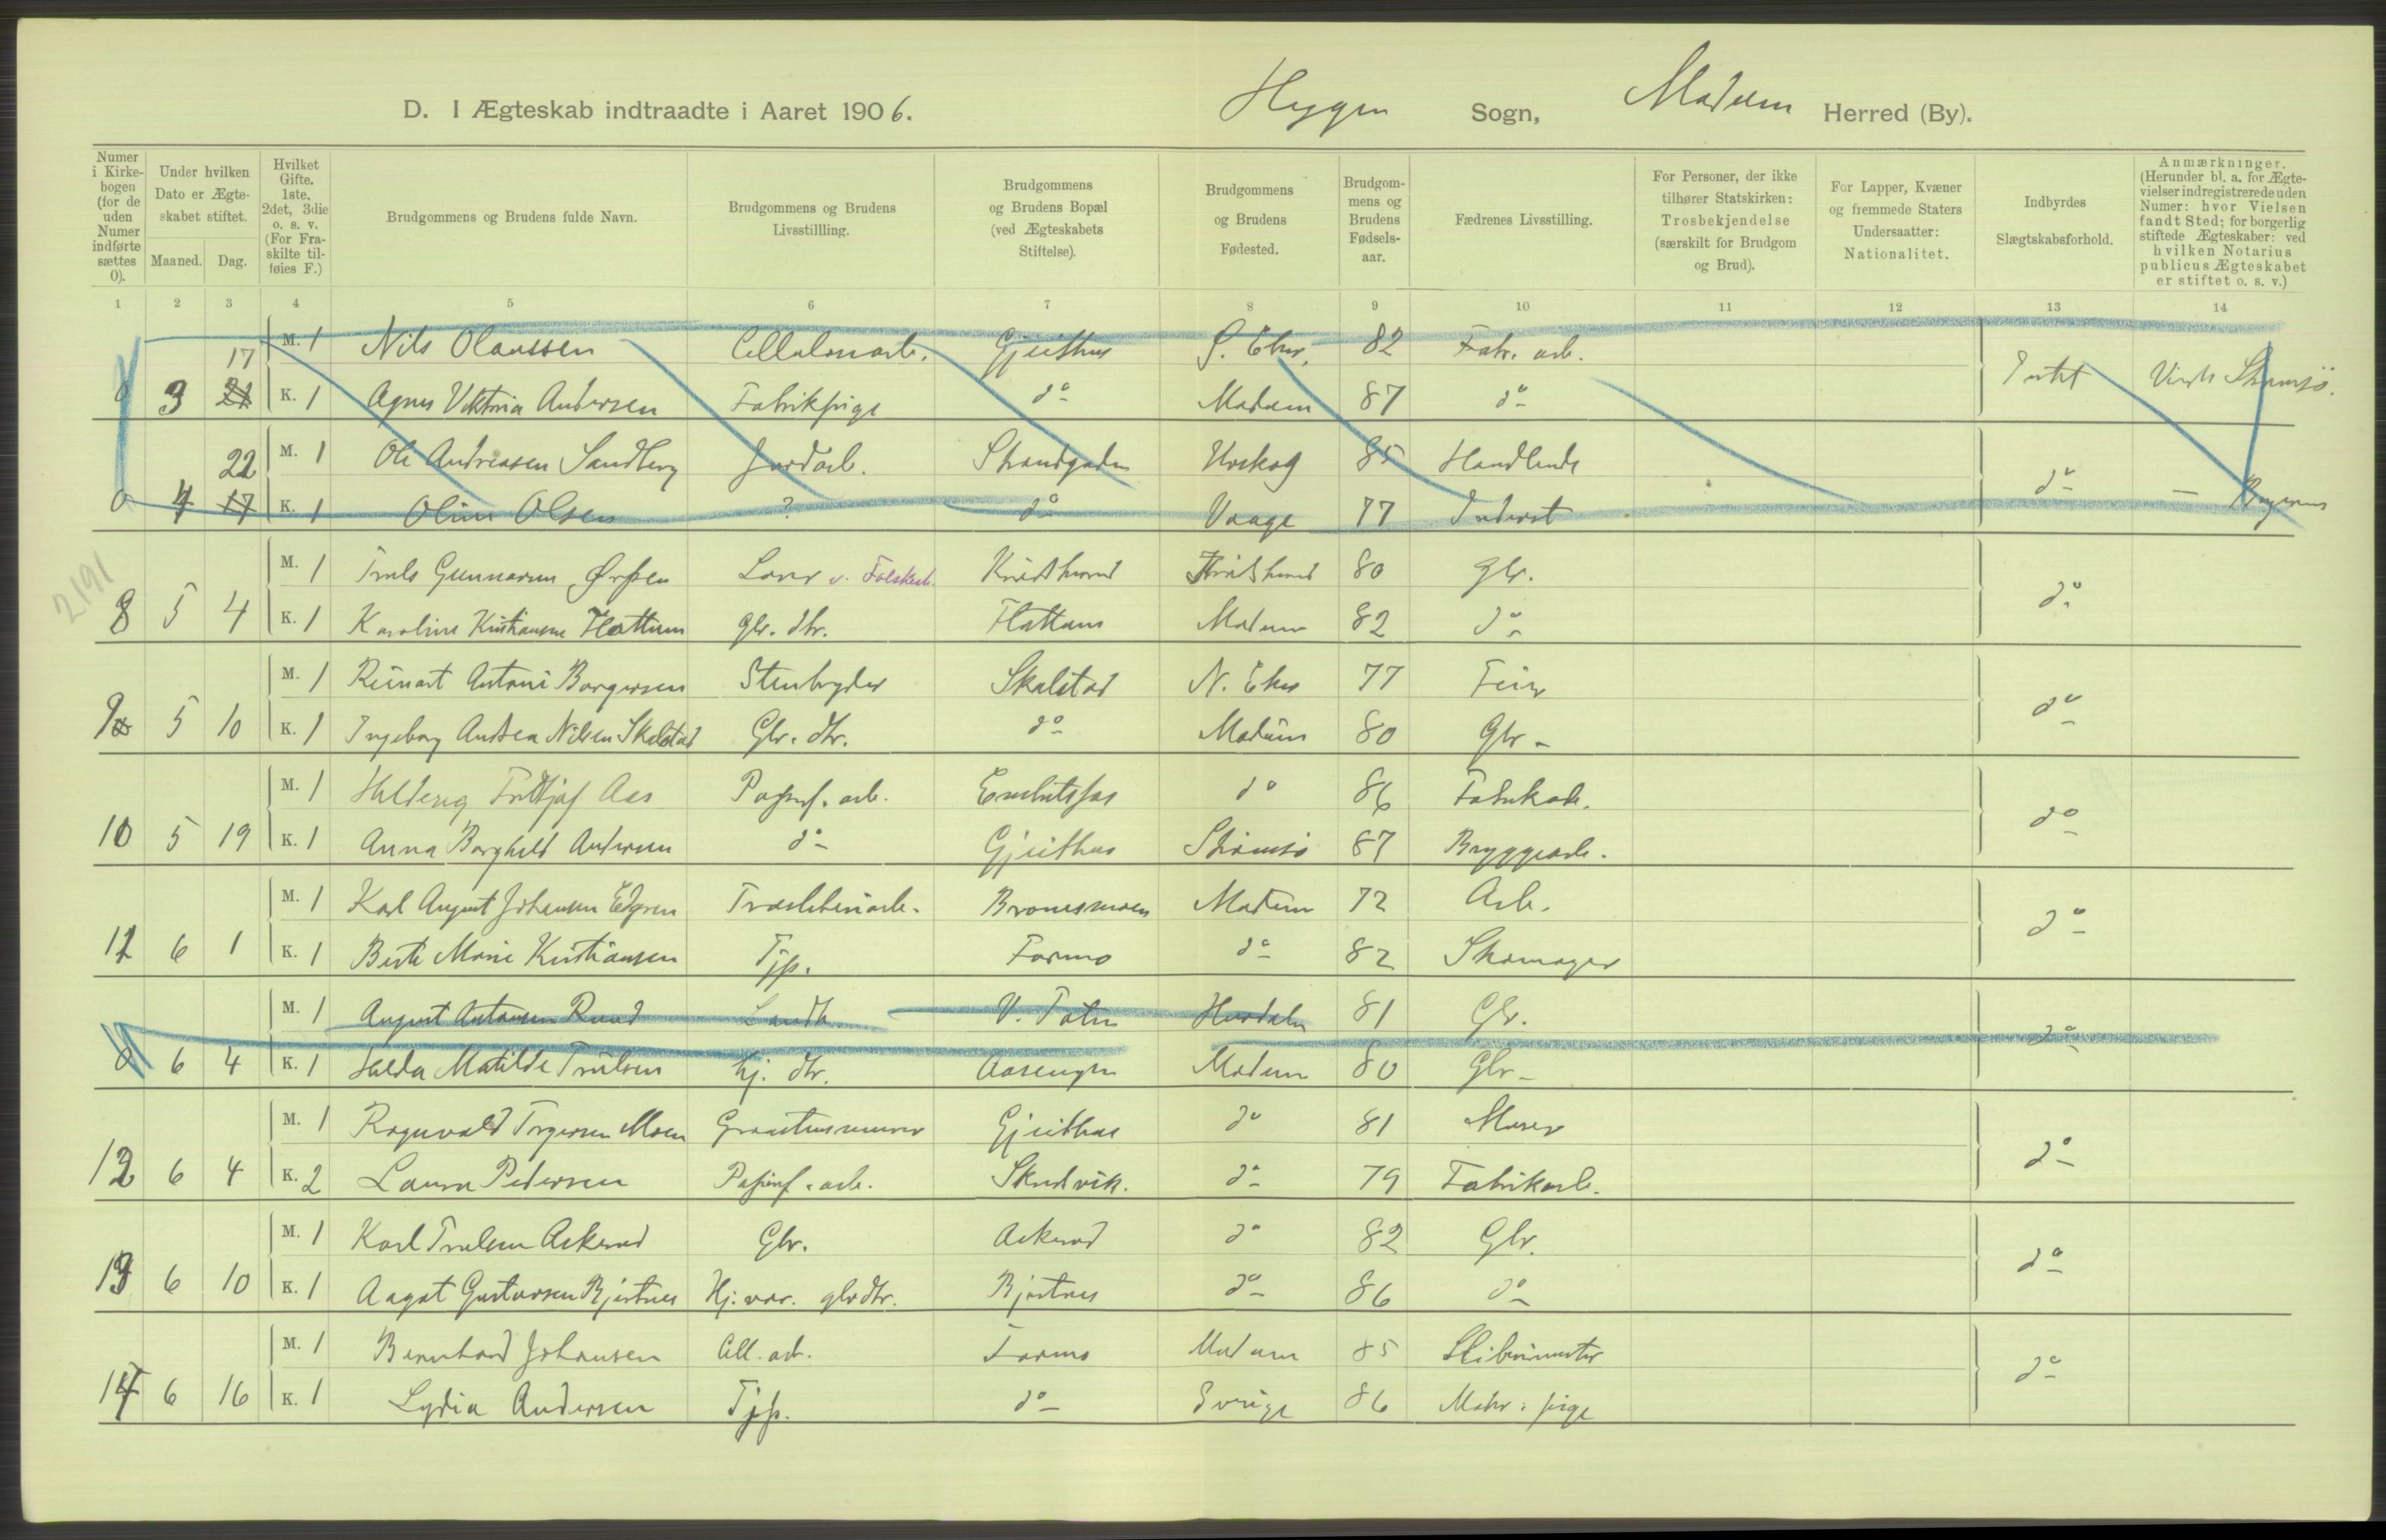 D. I Ægteskab indtraadte i Aaret 1906. Heggen Sogn, Modum Herred (By).
Numer i Kirkebogen (for de uden Numer indførte sættes 0).
Under hvilken Dato er Ægteskabet stiftet.
Maaned. Dag.
Hvilket Gifte. 1ste, 2det, 3die o. s. v. (For Fraskilte tilføies F.)
Brudgommens og Brudens fulde Navn.
Brudgommens og Brudens Livsstillling.
Brudgommens og Brudens Bopæl (ved Ægteskabets Stiftelse).
Brudgommens og Brudens Fødested.
Brudgommens og Brudens Fødselsaar.
Fædrenes Livsstilling.
For Personer, der ikke tilhører Statskirken: Trosbekjendelse (særskilt for Brudgom og Brud).
For Lapper, Kvæner og fremmede Staters Undersaatter: Nationalitet.
Indbyrdes Slægtskabsforhold.
Anmærkninger. (Herunder bl. a. for Ægtevielser indregistrerede uden Numer: hvor Vielsen fandt Sted; for borgerlig stiftede Ægteskaber: ved hvilken Notarius publicus Ægteskabet er stiftet o. s. v.)
1 2 3 4 5 6 7 8 9 10 11 12 13 14
17 M. 1 Nils Olaussen Cellulosearb. Gjeithus Ø. Eker 82 Fabr. arb.
0 3 21 K. 1 Agnes Viktoria Andersen Fabrikpige do Modum 87 do Intet Viet i Strømsø.
22 M. 1 Ole Andreasen Sandberg Jordarb. Strandgaden Urskog 85 Handlende
0 4 17 K. 1 Oline Olsen ? do Vaage 77 Inderst do —
2191
M. 1 Truls Gunnarsen Ørpen Lærer v. Folkesk. Krødsherred Krødsherred 80 Glr.
8 5 4 K. 1 Karoline Kristiansen Hattum glr. dtr. Hattum Modum 82 do do
M. 1 Reinart Antoni Borgersen Stenbryder Skalstad N. Eker 77 Feier
9 5 10 K. 1 Ingeborg Andrea Nilsen Skalstad Glr. dtr. do Modum 80 Glr do
M. 1 Fridtjof Aas Papirf. arb. do 86 Fabrikarb.
10 5 19 K. 1 Anna Borghild Andersen do Gjeithus Strømsø 87 Bryggearb. do
M. 1 Karl August Johansen Edgren Træsliberiarb. Bronesmoen Modum 72 Arb.
11 6 1 K. 1 Berte Marie Kristiansen Tjp. Formo do 82 Skomager do
M. 1 August Antonsen Ruud Landh. V. Toten Hurdalen 81 Gr.
0 6 4 K. 1 Hilda Matilde Trulsen Hj. dtr. Aasengen Modum 80 Glr do
M. 1 Ragnvald Torgersen Moen Graastensmurer Gjeithus do 81 Murer
12 6 4 K. 2 Laura Pedersen Papirf. arb. Skredsvik. do 79 Fabrikarb. do
M. 1 Karl Trulsen Askerud Glr. Askerud do 82 Glr.
13 6 10 K. 1 Aagot Gustavsen Bjertnes Hj. vær. glr dtr. Bjertnes do 86 do do
M. 1 Bernhard Johansen Cell. arb. Formo Modum 85 Sliberimester
14 6 16 K. 1 Lydia Andersen Tjp. do Sverige 86 pige do